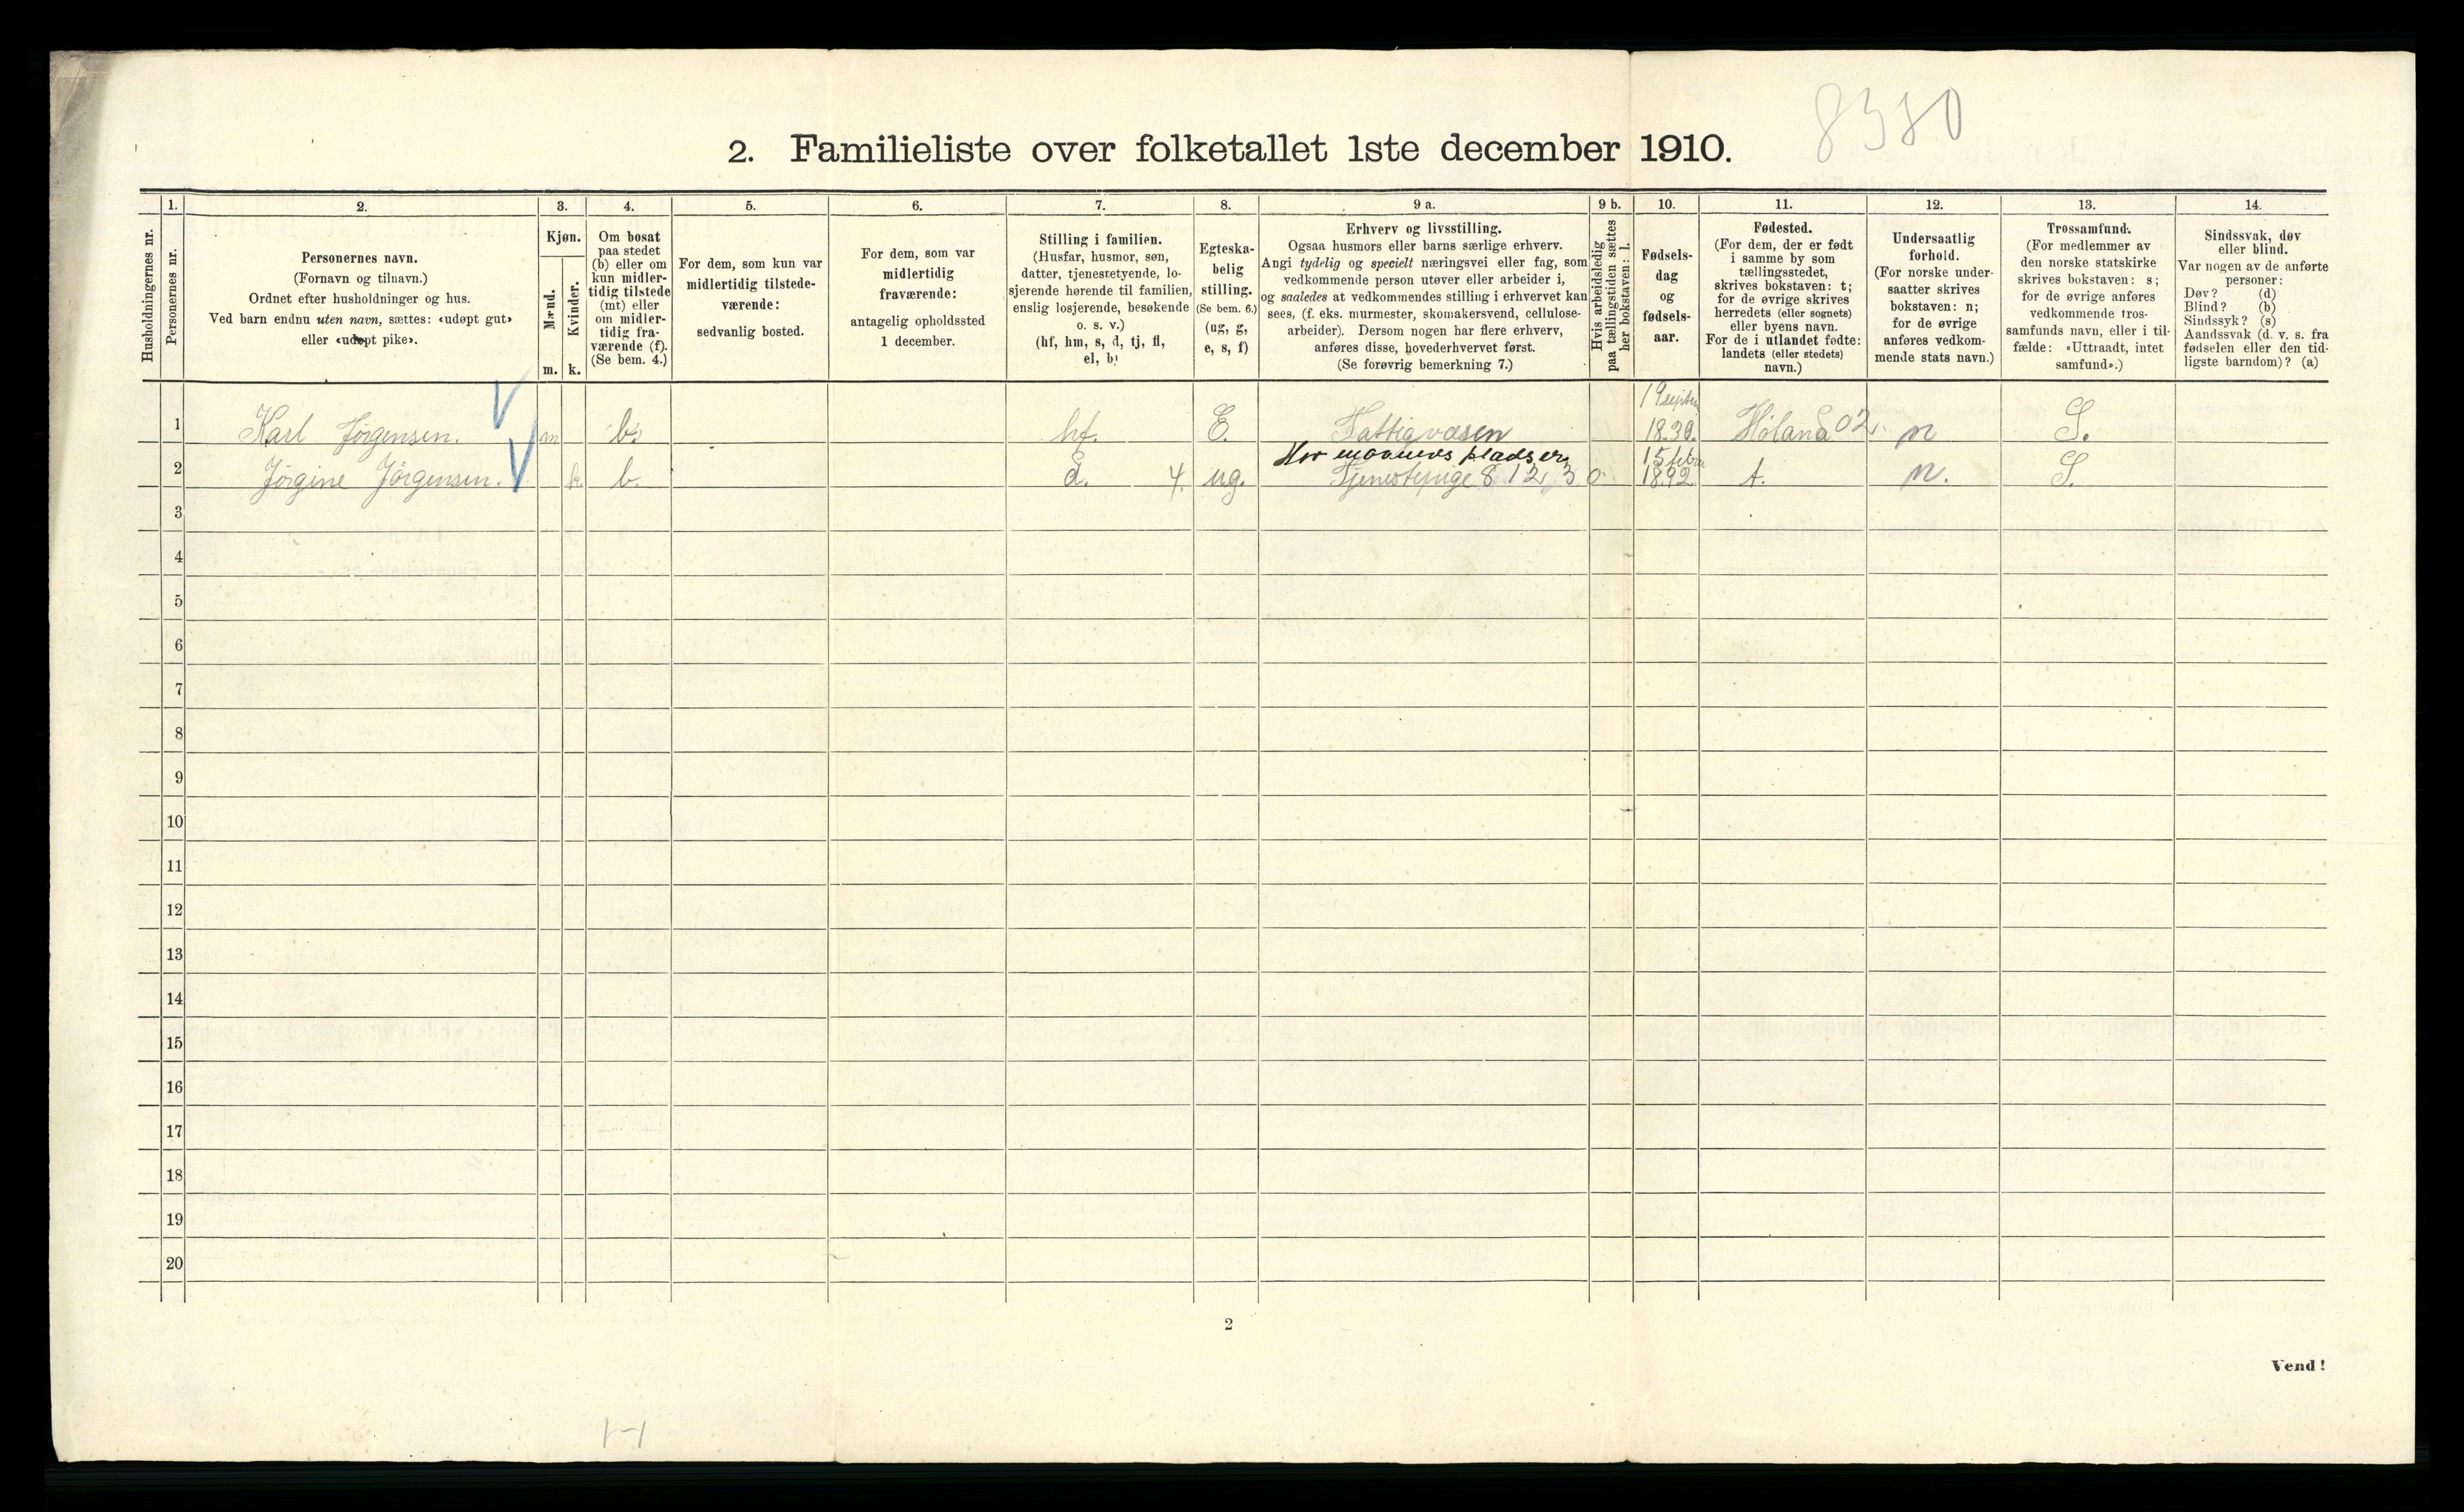 8380
2. Familieliste over folketallet 1ste december 1910.
Husholdningernes nr.
1.
Personernes nr.
2.
Personernes navn.
(Fornavn og tilnavn.)
Ordnet efter husholdninger og hus.
Ved barn endnu uten navn, sættes: «udøpt gut»
eller «udøpt pike».
3.
Kjøn.
Mænd.
Kvinder.
m.
k.
4.
Om bosat
paa stedet
(b) eller om
kun midler-
tidig tilstede
(mt) eller
om midler-
tidig fra-
værende (f).
(Se bem. 4.)
5.
For dem, som kun var
midlertidig tilstede-
værende:
sedvanlig bosted.
6.
For dem, som var
midlertidig
fraværende:
antagelig opholdssted
1 december.
7.
Stilling i familien.
(Husfar, husmor, søn,
datter, tjenestetyende, lo-
sjerende hørende til familien,
enslig losjerende, besøkende
o. s. v.)
(hf, hm, s, d, tj, fl,
el, b)
8.
Egteska-
belig
stilling.
(Se bem. 6.)
(ug, g,
e, s, f)
9 a.
Erhverv og livsstilling.
Ogsaa husmors eller barns særlige erhverv.
Angi tydelig og specielt næringsvei eller fag, som
vedkommende person utøver eller arbeider i,
og saaledes at vedkommendes stilling i erhvervet kan
sees, (f. eks. murmester, skomakersvend, cellulose-
arbeider). Dersom nogen har flere erhverv,
anføres disse, hovederhvervet først.
(Se forøvrig bemerkning 7.)
9 b.
Hvis arbeidsledig
paa tællingstiden sættes
her bokstaven: l.
10.
Fødsels-
dag
og
fødsels-
aar.
11.
Fødested.
(For dem, der er født
i samme by som
tællingsstedet,
skrives bokstaven: t;
for de øvrige skrives
herredets (eller sognets)
eller byens navn.
For de i utlandet fødte:
landets (eller stedets)
navn.)
12.
Undersaatlig
forhold.
(For norske under-
saatter skrives
bokstaven: n;
for de øvrige
anføres vedkom-
mende stats navn.)
13.
Trossamfund.
(For medlemmer av
den norske statskirke
skrives bokstaven: s;
for de øvrige anføres
vedkommende tros-
samfunds navn, eller i til-
fælde: «Uttraadt, intet
samfund».)
14.
Sindssvak, døv
eller blind.
Var nogen av de anførte
personer:
Døv? (d)
Blind? (b)
Sindssyk? (s)
Aandssvak (d. v. s. fra
fødselen eller den tid-
ligste barndom)? (a)
1 Karl Jørgensen. m b. hf. E. Fattigvæsen 19 septem 1830. Høland 02. n S.
2 Jørgine Jørgensen. k b. d. 4. ug. Tjenestepige 8 12 3 0 15 febr 1892 t. n. S.
3
4
5
6
7
8
9
10
11
12
13
14
15
16
17
18
19
20
2
Vend!
1-1